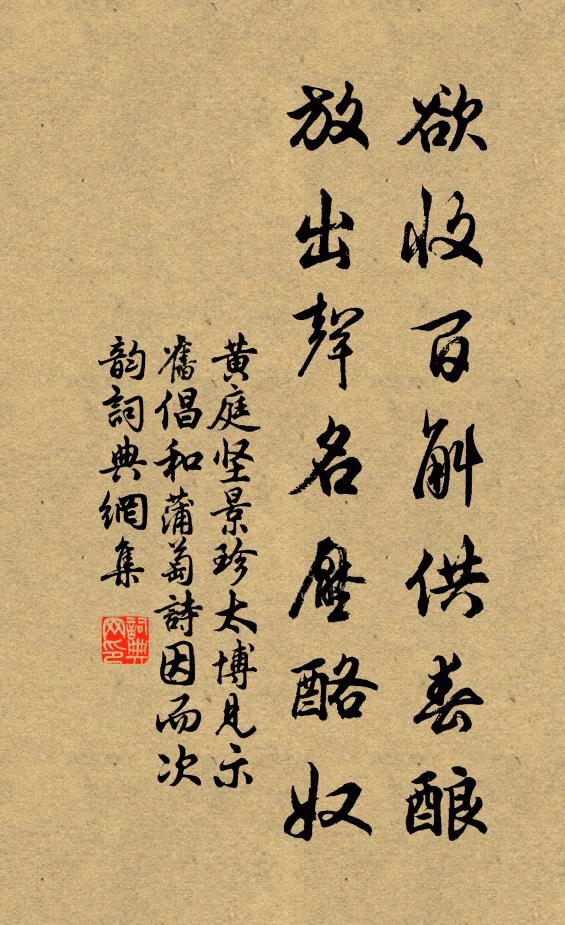 欲收百斛供春酿
放出聲名壓酪奴
黄庭坚景珍太博見示
舊倡和蒲萄詩因而次
韵詞典網集
詞典网印